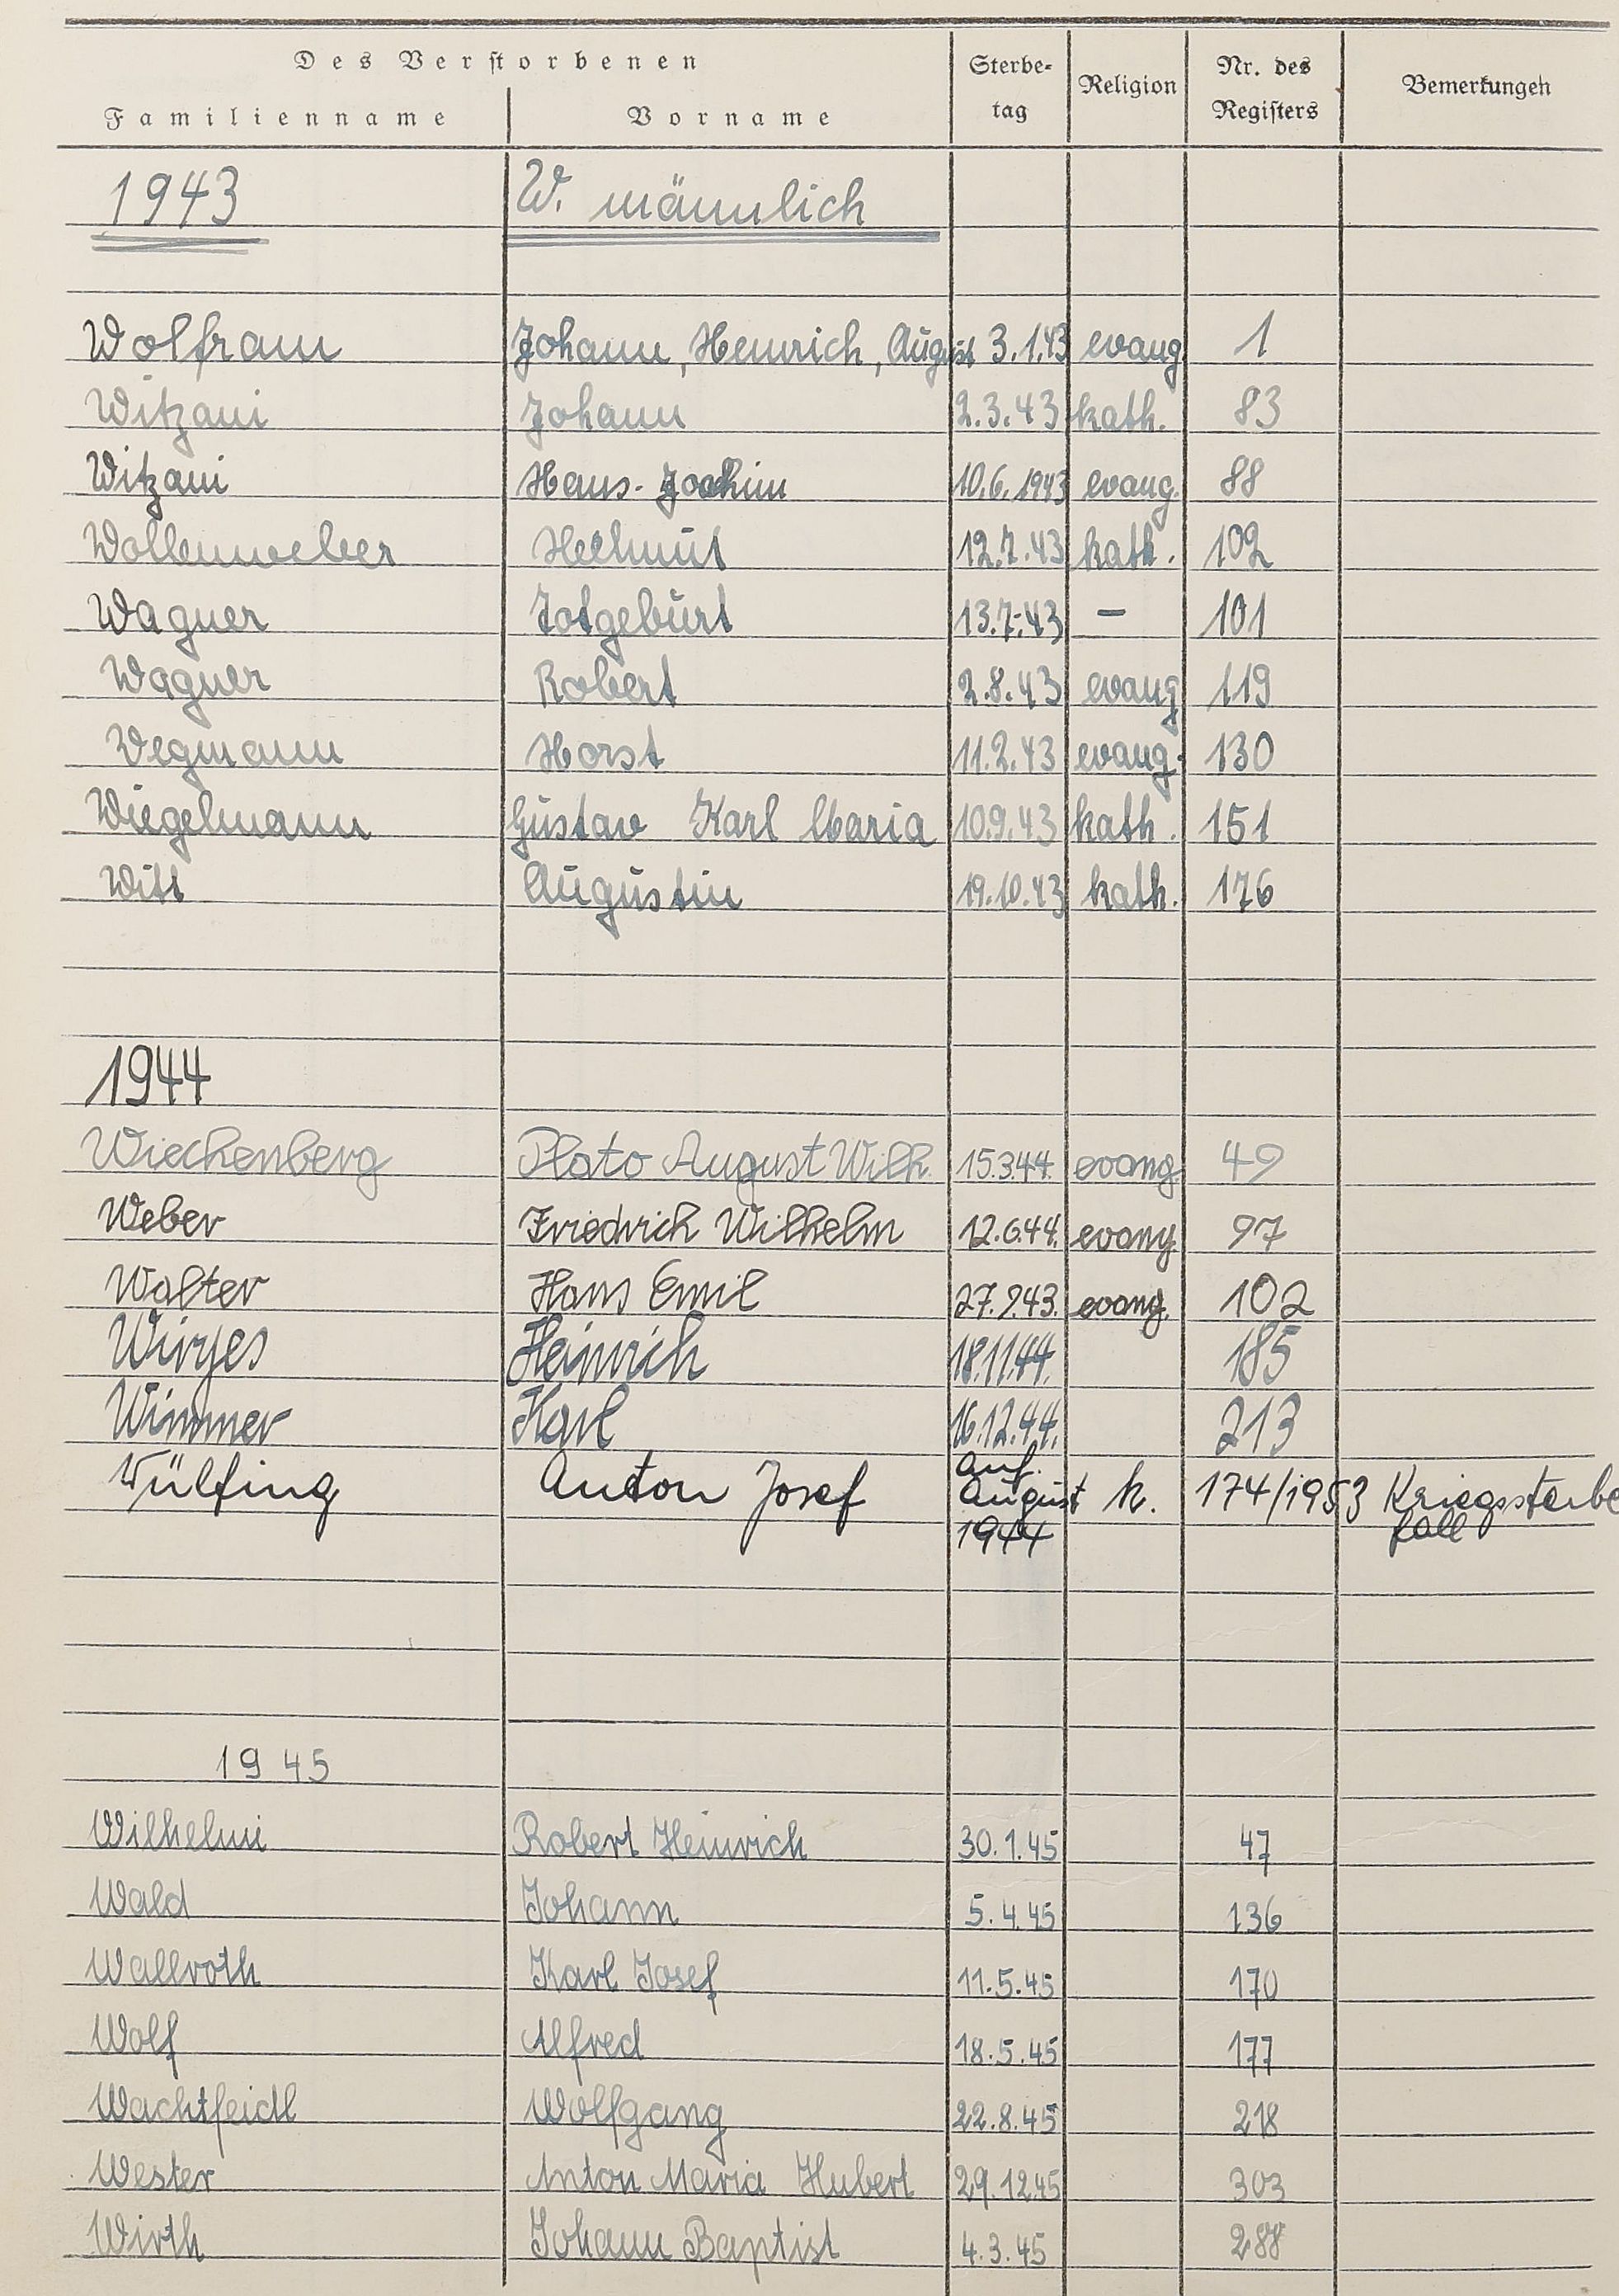 Des Verstorbenen
Sterbetag Religion Nr. des Registers Bemerkungen
Familienname Vorname
1943 W. männlich
Wolfram Johann, Heinrich, August 3.1.43 evang 1
Witzani Johann 2.3.43 kath. 83
Witzani Hans-Joachim 10.6.1943 evang. 88
Wollenweber Helmut 12.7.43 kath. 102
Wagner Totgeburt 13.7.43 – 101
Wagner Robert 2.8.43 evang 119
Wegmann Horst 11.2.43 evang. 130
Wiegelmann Gustav Karl Maria 10.9.43 kath. 151
Witt Augustin 19.10.43 kath. 176
1944
Wiechenberg Plato August Wilh. 15.3.44. evang. 49
Weber Friedrich Wilhelm 12.6.44. evang. 97
Walter Hans Emil 27.9.43. evang. 102
Wirges Heinrich 18.11.44. 185
Wimmer Karl 16.12.44. 213
Wülfing Anton Josef anf. August 1944 k. 174/1953 Kriegssterbefall
1945
Wilhelmi Robert Heinrich 30.1.45 47
Wald Johann 5.4.45 136
Wallroth Karl Josef 11.5.45 170
Wolf Alfred 18.5.45 177
Wachtfeidl Wolfgang 22.8.45 218
Wester Anton Maria Hubert 29.12.45 303
Wirth Johann Baptist 4.3.45 288